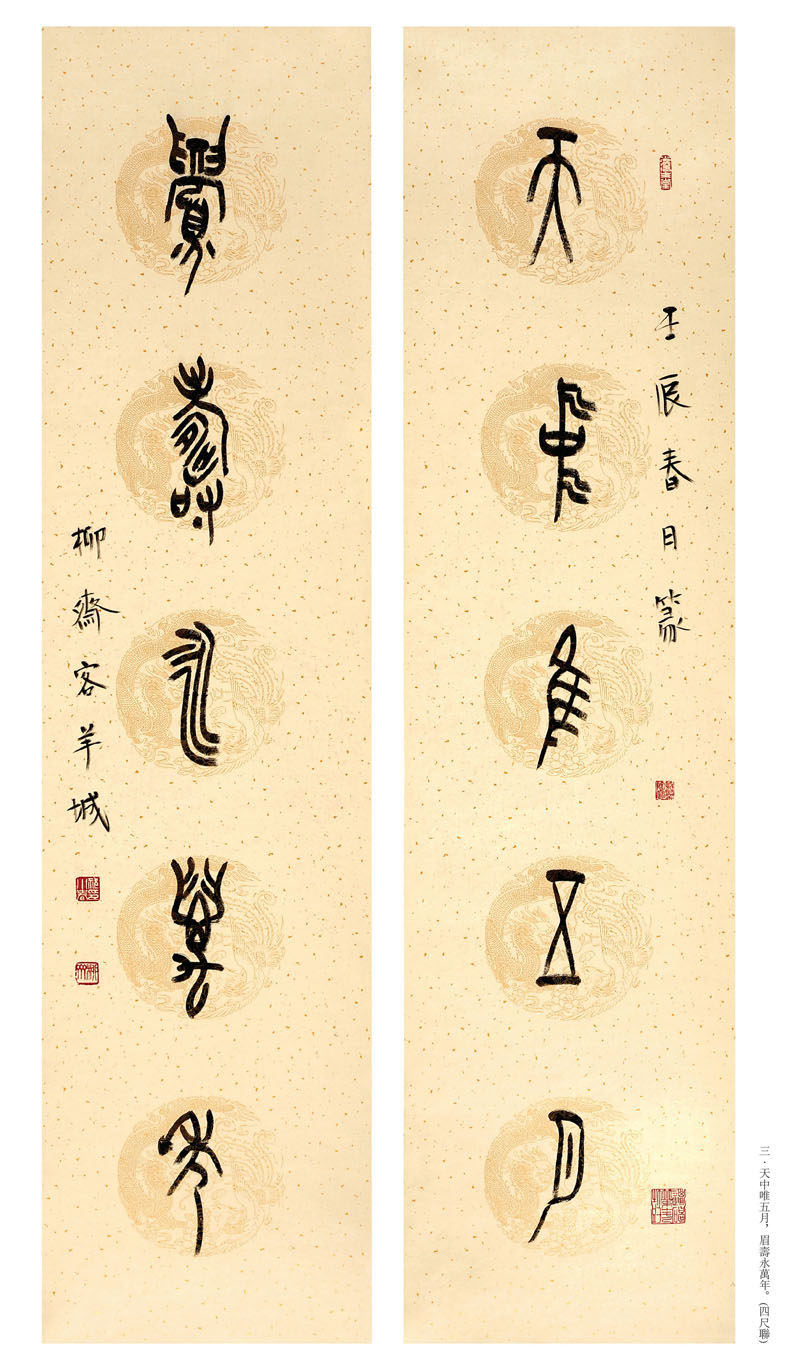 天中唯五月
壬辰春月篆
眉壽永萬年
柳齋客羊城
三·天中唯五月，眉壽永萬年。(四尺聯)